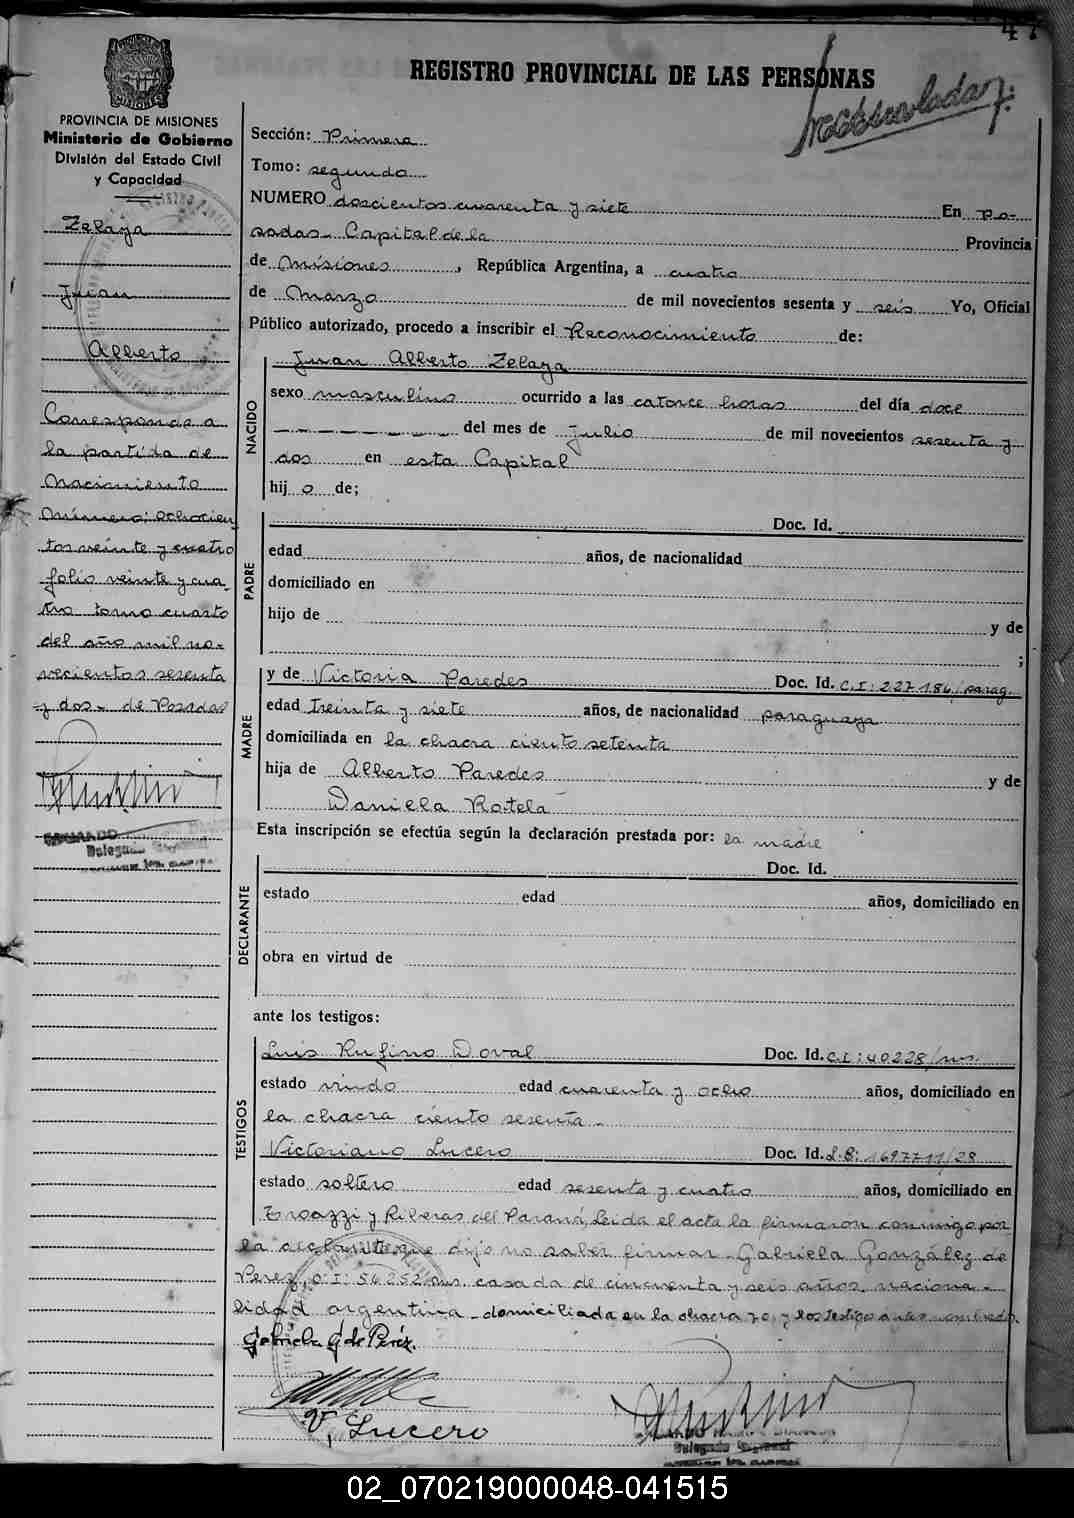 47
REGISTRO PROVINCIAL DE LAS PERSONAS
PROVINCIA DE MISIONES
Ministerio de Gobierno
División del Estado Civil
y Capacidad
Zelaya
Juan
Alberto
Corresponde a
la partida de
nacimiento
número; ochocien
tos veinte y cuatro
folio veinte y cua-
tro tomo cuarto
del año mil no-
vecientos sesenta
y dos - de Posadas
Delegado
Sección: Primera
Tomo: segundo
NUMERO doscientos cuarenta y siete En Po-
sadas - Capital de la Provincia
de Misiones, República Argentina, a cuatro
de Marzo de mil novecientos sesenta y seis Yo, Oficial
Público autorizado, procedo a inscribir el Reconocimiento de:
NACIDO
Juan Alberto Zelaya
sexo masculino ocurrido a las catorce horas del día doce
del mes de Julio de mil novecientos sesenta y
dos en esta Capital
hijo de;
PADRE
Doc. Id.
edad años, de nacionalidad
domiciliado en
hijo de y de
;
MADRE
y de Victoria Paredes Doc. Id. C.I: 227186/parag.
edad Treinta y siete años, de nacionalidad paraguaya
domiciliada en la chacra ciento setenta
hija de Alberto Paredes y de
Daniela Rotela
Esta inscripción se efectúa según la declaración prestada por: la madre
DECLARANTE
Doc. Id.
estado edad años, domiciliado en
obra en virtud de
ante los testigos:
TESTIGOS
Luis Rufino Doval Doc. Id. C.I: 40228/ms.
estado viudo edad cuarenta y ocho años, domiciliado en
la chacra ciento sesenta -
Victoriano Lucero Doc. Id. L.B: 1697711/28
estado soltero edad sesenta y cuatro años, domiciliado en
y Riberas del Paraná, Leida el acta la firmaron conmigo por
la declarante que dijo no saber firmar Gabriela González de
Perez, C.I: 56252/ms. casada de cincuenta y seis años, naciona-
lidad argentina - domiciliada en la chacra 70 y los testigos antes nombrados.
Gabriela G de Peréz.
V, Lucero
02_070219000048-041515